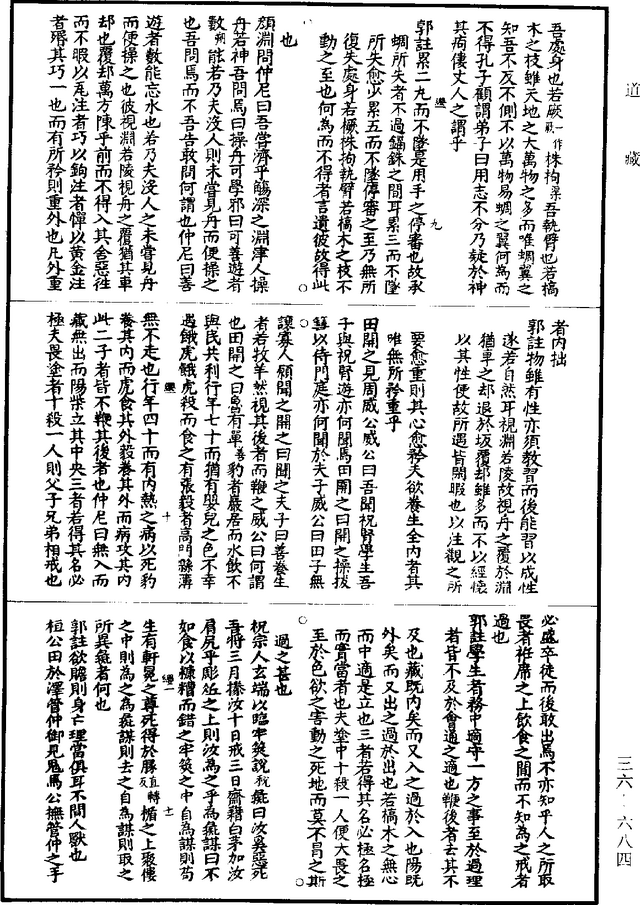 吾處身也若厥一作橛株拘渠吾執臂也若槁
木之枝雖天地之大萬物之多而唯蜩翼之
知吾不反不側不以萬物易蜩之翼何為而
不得孔子顧謂弟子曰用志不分乃凝於神
其痀僂丈人之謂乎
郭註累二九而不墜是用手之停審也故承
蜩所失者不過錙銖之間耳累三而不墜
所失愈必累五而不墜停審之至乃無所
復失處身若橛株拘執臂若槁木之枝不
動之至也何為而不得者言遺彼故得此
也
顏淵問仲尼曰吾嘗濟乎觴深之淵津人操
舟若神吾問焉曰操舟可學邪曰可善遊者
數朔能若乃夫沒人則未嘗見舟而便操之
也吾問焉而不吾告敢問何謂也仲尼曰善
遊者數能忘水也若乃夫沒人之未嘗見舟
而便操之也彼視淵若陵視舟之覆猶其車
却也覆却萬方陳乎前而不得入其舍惡往
而不暇以瓦注者巧以鉤注者憚以黃金注
者殙其巧一也而有所矜則重外也凡外重
者內拙
郭註物雖有性亦須教習而後能習以成性
遂若自然耳視淵若陵故視舟之覆於淵
猶車之却退於坂覆却雖多而不以經懷
以其性便故所遇皆閑暇也以注觀之所
要愈重則其心愈矜夫欲養生全內者其
唯無所矜重乎
田開之見周威公威公曰吾聞祝腎學生吾
子與祝腎遊亦何聞焉田開之曰開之操拔
篲以侍門庭亦何聞於夫子威公曰田子無
讓寡人願聞之開之曰聞之夫子曰善養生
者若牧羊然視其後者而鞭之威公曰何謂
也田開之曰魯有單善豹者巖居而水飲不
與民共利行年七十而猶有嬰兒之色不幸
遇餓虎餓虎殺而食之有張毅者高門縣薄
無不走也行年四十而有內熱之病以死豹
養其內而虎食其外毅養其外而病攻其內
此二子者皆不鞭其後者也仲尼曰無入而
藏無出而陽柴立其中央三者若得其名必
極夫畏塗者十殺一人則父子兄弟相戒也
必盛卒徒而後敢出焉不亦知乎人之所取
畏者袵席之上飲食之間而不知為之戒者
過也
郭註學生者務中適守一方之事至於過理
者皆不及於會通之適也鞭後者去其不
及也藏既內矣而又入之過於入也陽既
外矣而又出之過於出也若槁木之無心
而中適是立也三者若得其名必極名極
而實當者也夫塗中十殺一人便大畏之
至於色欲之害動之死地而莫不冒之斯
過之甚也
祝宗人玄端以臨牢筴說稅彘曰汝奚惡死
吾將三月㹖汝十日戒三日齋藉白茅加汝
肩尻乎彫俎之上則汝為之乎為彘謀曰不
如食以糠糟而錯之牢筴之中自為謀則苟
生有軒冕之尊死得於腞直轉反楯之上聚僂
之中則為之為彘謀則去之自為謀則取之
所異彘者何也
郭註欲贍則身亡理當俱耳不間人獸也
桓公田於澤管仲御見鬼焉公撫管仲之手
道藏
三六-六八四